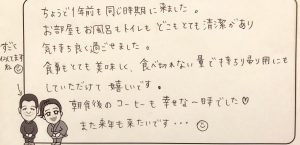 ちょうど1年前も同じ時期に来ました。
お部屋もお風呂もトイレも どこもとても清潔があり
気持ち良く過ごせました。
食事もとても美味しく、食べ切れない量で持ち帰り用にも
していただけて 嬉しいです。
朝食後のコーヒーも 幸せな一時でした♡
また来年も来たいです・・・☺
すごく
似てます
ね☺